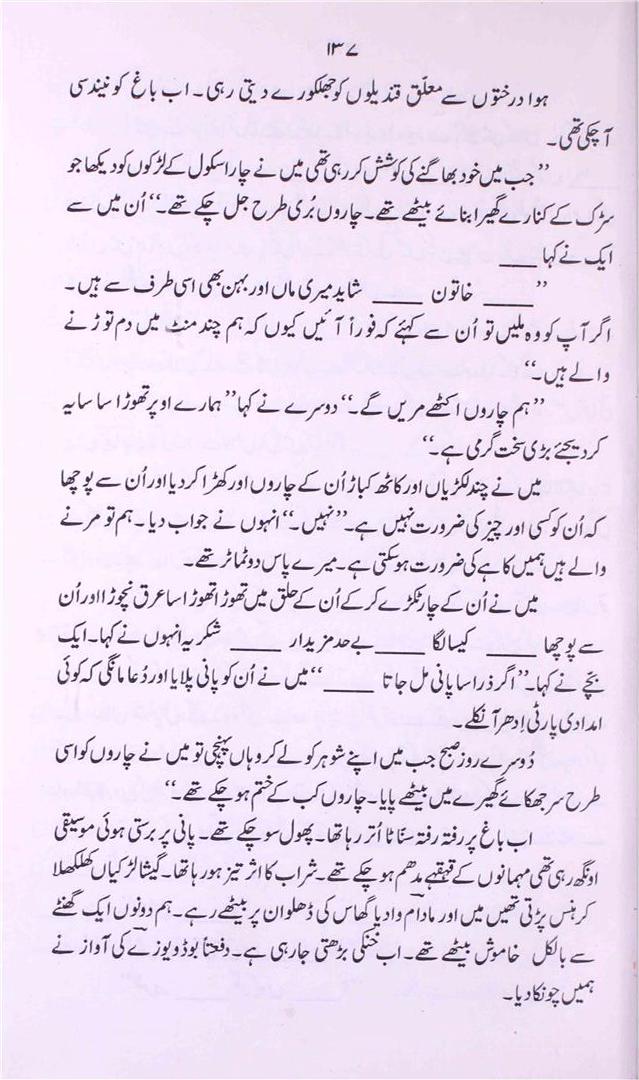 ۱۳۷
ہوا درختوں سے معلّق قندیلوں کو جھلکورے دیتی رہی۔ اب باغ کو نیند سی
آچکی تھی۔
’’جب میں خود بھاگنے کی کوشش کر رہی تھی میں نے چار اسکول کے لڑکوں کو دیکھا جو
سڑک کے کنارے گھیرا بنائے بیٹھے تھے۔ چاروں بُری طرح جل چکے تھے۔‘‘ اُن میں سے
ایک نے کہا ____
’’____ خاتون ____ شاید میری ماں اور بہن بھی اسی طرف سے ہیں۔
اگر آپ کو وہ ملیں تو اُن سے کہئے کہ فوراً آئیں کیوں کہ ہم چند منٹ میں دم توڑنے
والے ہیں۔‘‘
’’ہم چاروں اکٹھے مریں گے۔‘‘ دوسرے نے کہا ’’ہمارے اوپر تھوڑا سا سایہ
کر دیجئے بڑی سخت گرمی ہے۔‘‘
میں نے چند لکڑیاں اور کاٹھ کباڑ اُن کے چاروں اور کھڑا کر دیا اور اُن سے پوچھا
کہ اُن کو کسی اور چیز کی ضرورت نہیں ہے۔ ’’نہیں۔‘‘ انہوں نے جواب دیا۔ ہم تو مرنے
والے ہیں ہمیں کاہے کی ضرورت ہو سکتی ہے۔ میرے پاس دو ٹماٹر تھے۔
میں نے اُن کے چار ٹکڑے کر کے اُن کے حلق میں تھوڑا تھوڑا سا عرق نچوڑا اور اُن
سے پوچھا کیسا لگا ____ بے حد مزیدار ____ شکریہ انہوں نے کہا۔ ایک
بچے نے کہا۔ ’’اگر ذرا سا پانی مل جاتا ____‘‘ میں نے اُن کو پانی پلایا اور دُعا مانگی کہ کوئی
امدادی پارٹی اِدھر آنکلے۔
دُوسرے روز صبح جب میں اپنے شوہر کو لے کر وہاں پہنچی تو میں نے چاروں کو اسی
طرح سر جھکائے گھیرے میں بیٹھے پایا۔ چاروں کب کے ختم ہو چکے تھے۔‘‘
اب باغ پر رفتہ رفتہ سنّاٹا اُتر رہا تھا۔ پھول سو چکے تھے۔ پانی پر برستی ہوئی موسیقی
اونگھ رہی تھی مہمانوں کے قہقہے مدھم ہو چکے تھے۔ شراب کا اثر تیز ہو رہا تھا۔ گیشا لڑکیاں کھلکھلا
کر ہنس پڑتی تھیں میں اور مادام وادیا گھاس کی ڈھلوان پر بیٹھے رہے۔ ہم دونوں ایک گھنٹے
سے بالکل خاموش بیٹھے تھے۔ اب خنکی بڑھتی جا رہی ہے۔ دفعتاً بوڈویوزے کی آواز نے
ہمیں چونکا دیا۔